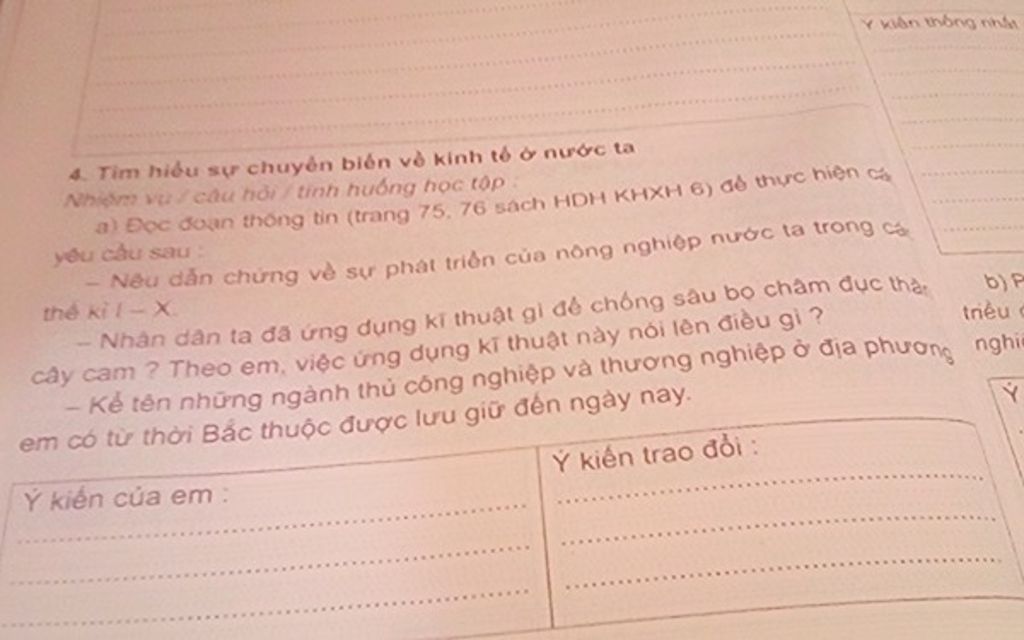 Ý kiến thống nhất
4. Tìm hiểu sự chuyển biến về kinh tế ở nước ta
Nhiệm vụ / câu hỏi / tình huống học tập :
a) Đọc đoạn thông tin (trang 75, 76 sách HDH KHXH 6) để thực hiện cá
yêu cầu sau :
– Nêu dẫn chứng về sự phát triển của nông nghiệp nước ta trong cá
thế kỉ I – X.
– Nhân dân ta đã ứng dụng kĩ thuật gì để chống sâu bọ châm đục thâ
cây cam ? Theo em, việc ứng dụng kĩ thuật này nói lên điều gì ?
– Kể tên những ngành thủ công nghiệp và thương nghiệp ở địa phương
em có từ thời Bắc thuộc được lưu giữ đến ngày nay.
Ý kiến của em :
Ý kiến trao đổi :
b) P
triều
nghi
Ý